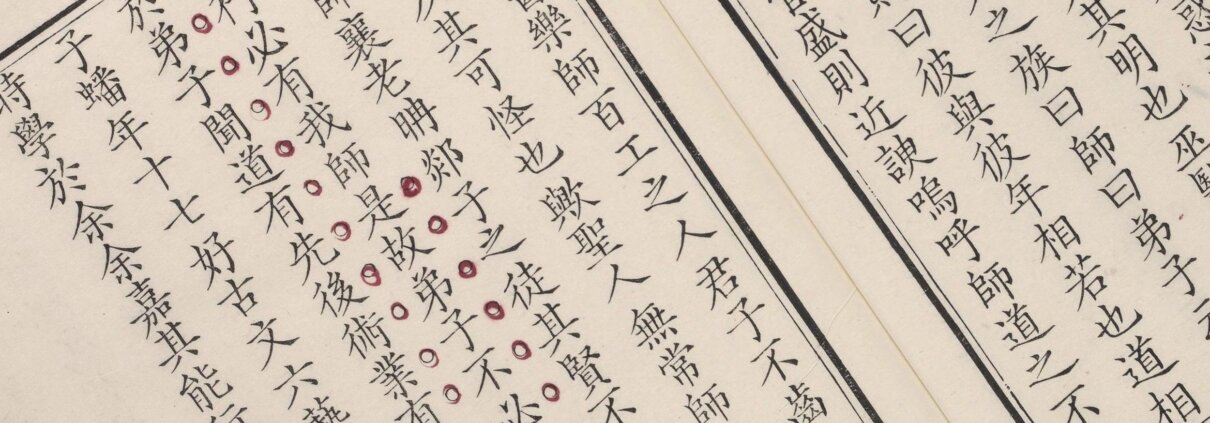 惑
其明也巫
之族曰師曰弟子
則曰彼與彼年相若也道相
盛則近諛嗚呼師道之不
樂師百工之人君子不齒
其可怪也歟聖人無常師
師襄老聃郯子之徒其賢不
必有我師是故弟子不必
於弟子聞道有先後術業有
子蟠年十七好古文六藝
時學於余余嘉其能